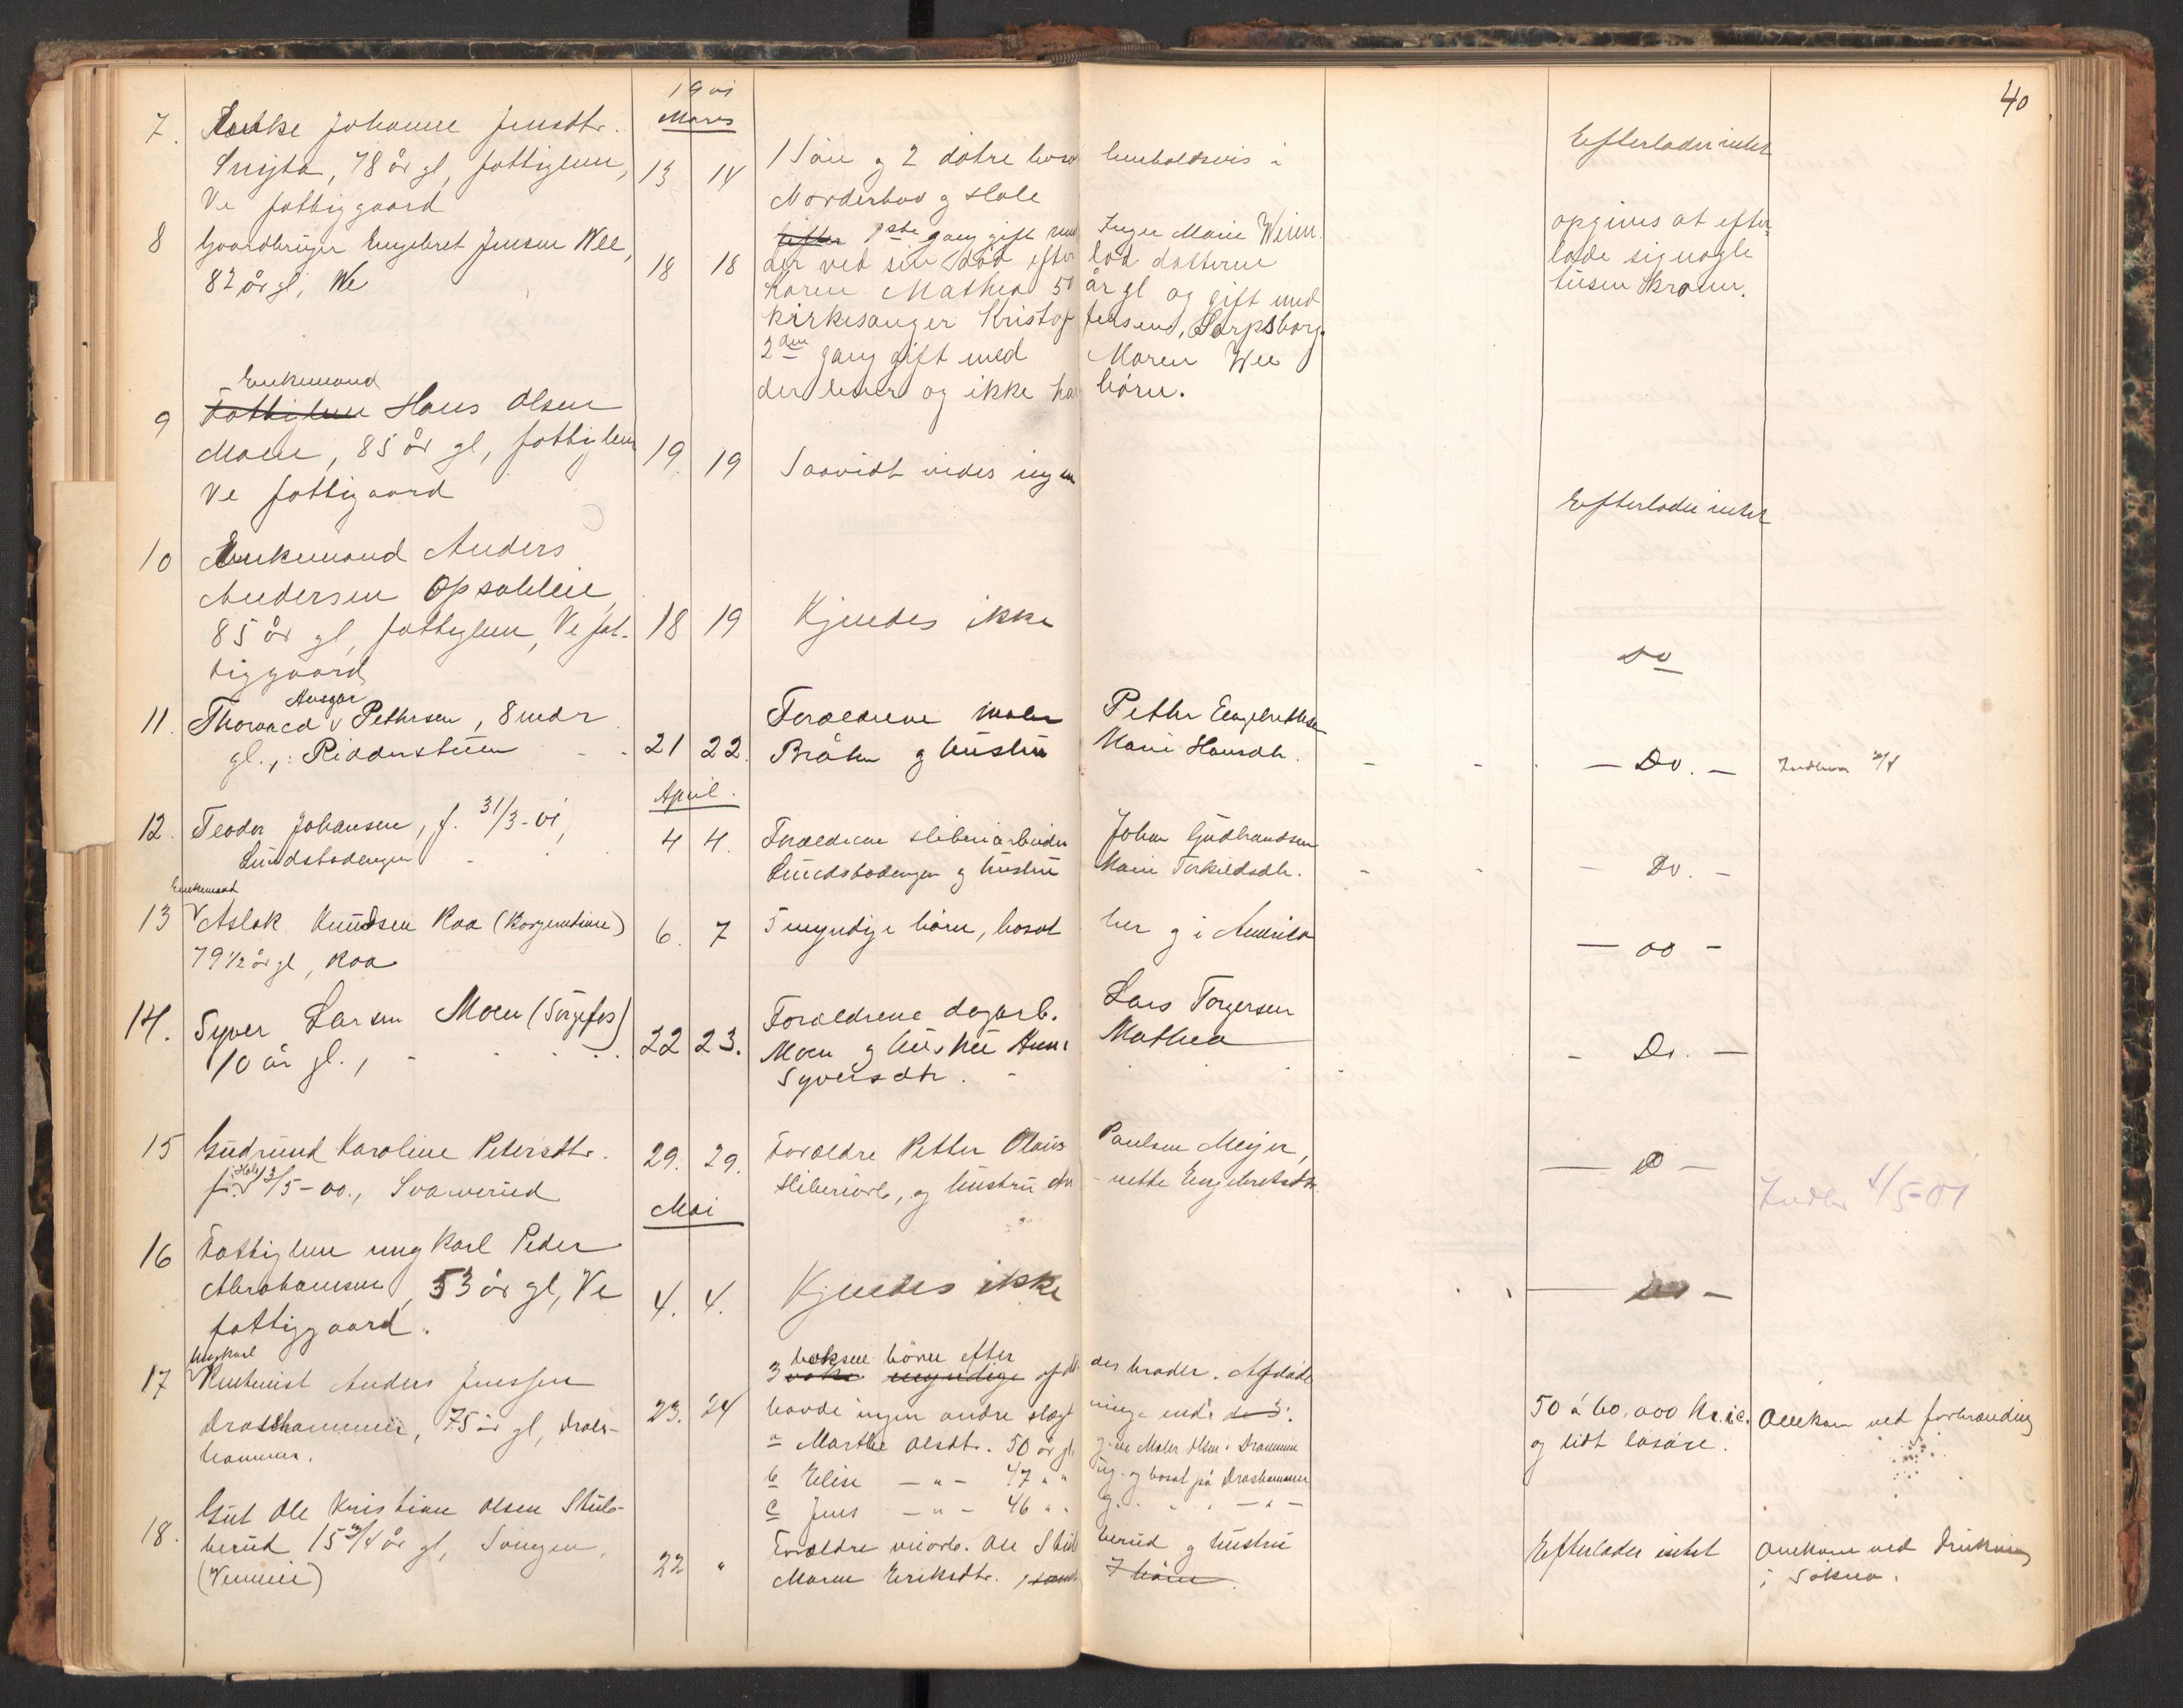 40
1901
Mars
7. Enke Johanne Jensdtr.
Snyta, 78 år gl, fattiglem,
Ve fattiggaard
13 14
1 Søn og 2 døtre bosat henholdsvis i
Norderhov og Hole
Efterlader intet
8 Gaardbruger Engebret Jensen Wee,
82 år gl, We
18 18
1ste gang gift med Inger Marie
der ved sin død efterlod datteren
Karen Mathea 50 år gl og gift med
kirkesanger Kristoffersen, Sarpsborg.
2den gang gift med Maren Wee
der lever og ikke har børn.
opgives at efter-
lade sig nogle
tusen kroner.
Enkemand
9 Fattiglem Hans Olsen
Moen, 85 år gl, fattiglem
Ve fattiggaard
19. 19
Saavidt vides ingen
Efterlader intet
10 Enkemand Anders
Andersen Opsaleie
85 år gl, fattiglem, Ve fat-
tiggaard
18 19
Kjendes ikke
Do
Ansgar
11. Thorvald Pettersen, 8 mdr
gl., Ridderstuen
21 22.
Forældrene maler Petter Engebrethsen
Bråten og hustru Marie Hansdtr.
— Do. —
April.
12. Teodor Johansen, f. 31/3-01,
Lundstadengen
4 4.
Forældrene sliberiarbeider Johan Gudbrandsen
Lundstadengen og hustru Marie Torkildsdtr.
— Do. —
Enkemand
13 Aslak Knudsen Roa (Borgerntiere)
79 1/2 år gl, Roa
6. 7
5 myndige børn, bosat her og i Amerika
— Do —
14. Syver Larsen Moen (Sørgefos)
10 år gl.,
22 23.
Forældrene dagarb. Lars Torgersen
Moen og hustru Anne Mathea
Syversdtr.
- Do. —
15 Gudrund Karoline Petersdtr.
f. i Hole 13/5-00., Svarverud
29. 29.
Forældre Petter Olaus Paulsen Meijer,
sliberiarb, og hustru Annette Engebretsdtr.
— Do —
Indb. 4/5-01
Mai
16 Fattiglem ung Karl Peder
Abrahamsen, 53 år gl, Ve
fattiggaard.
4. 4.
Kjendes ikke
— Do —
Ungkarl
17 Rentenist Anders Jenssen
Drolshammer, 75 år gl, Drols-
hammer.
23. 24
voksne børner efter
3 myndige afdødes broder. Afdøde
havde ingen andre slægtninge end de 3:
a Marthe Olsdtr. 50 år gl. g. m. Maler Olsen i Drammen
b Elise — " — 47 " " ug. og bosat på Drolshammer
c Jens — " — 46 " " g. " " " — " —
50 à 60,000 Kr.
og lidt løsøre.
Omkom ved forbrænding
18. Gut Ole Kristian Olsen Stub-
berud 15 3/4 år gl, Svingen,
22 "
Forældre Ole Stubberud og hustru
Maren Eriksdtr. 7 børn
Efterlader intet
Omkom ved Drukning
i Sokna.